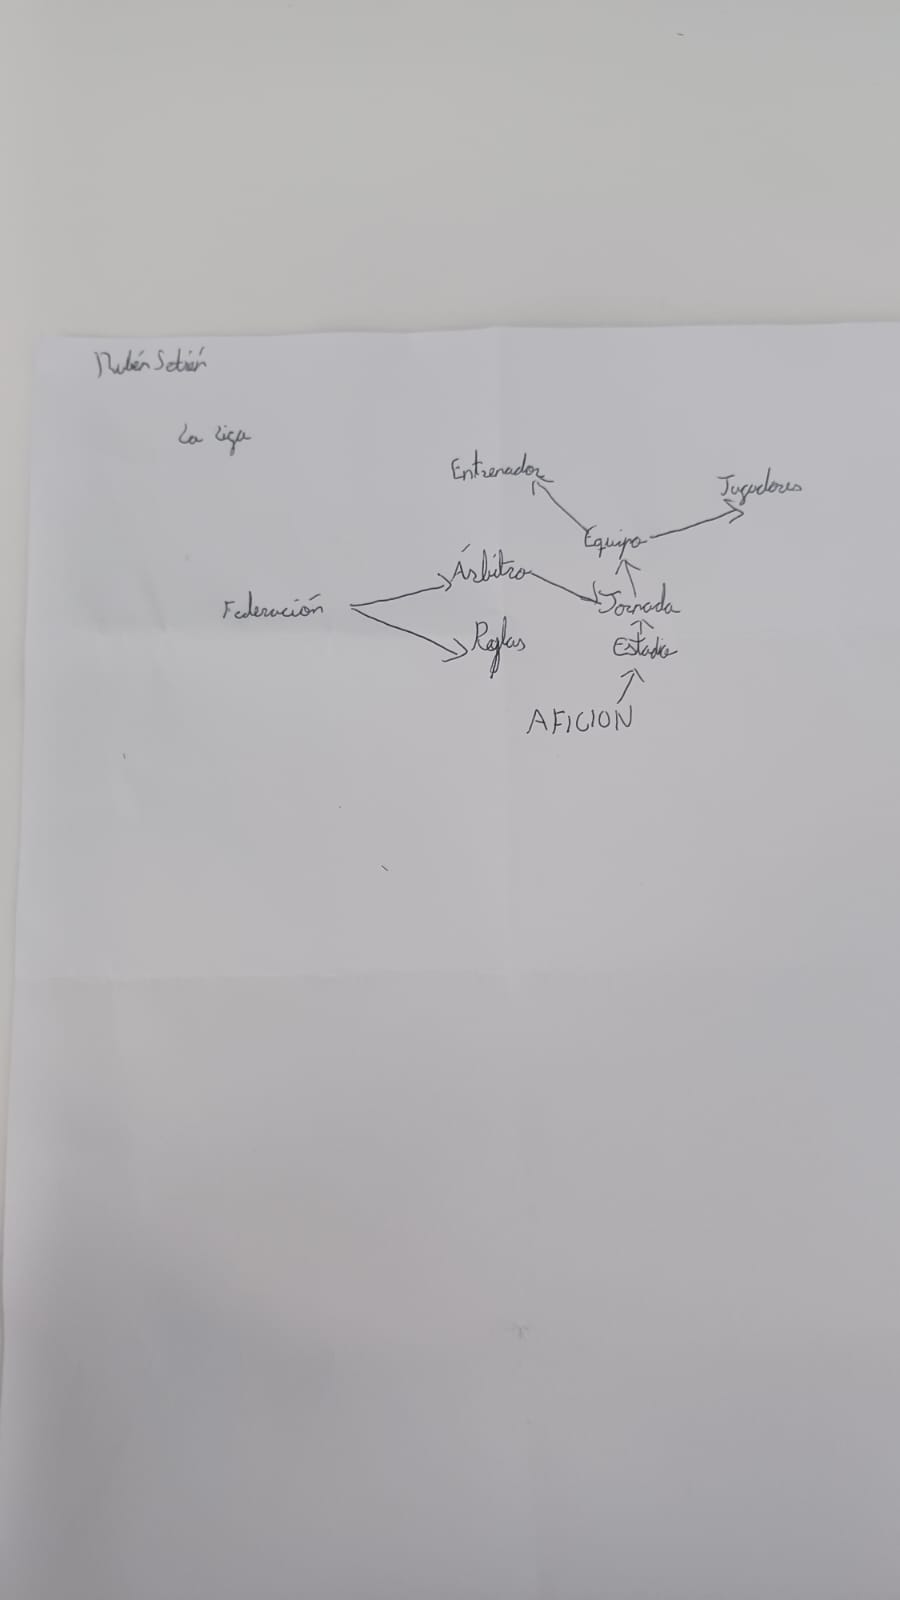 Rubén Setién
La liga
Entrenador
Jugadores
Equipo
Árbitro
Federación
Jornada
Reglas
Estadio
AFICION